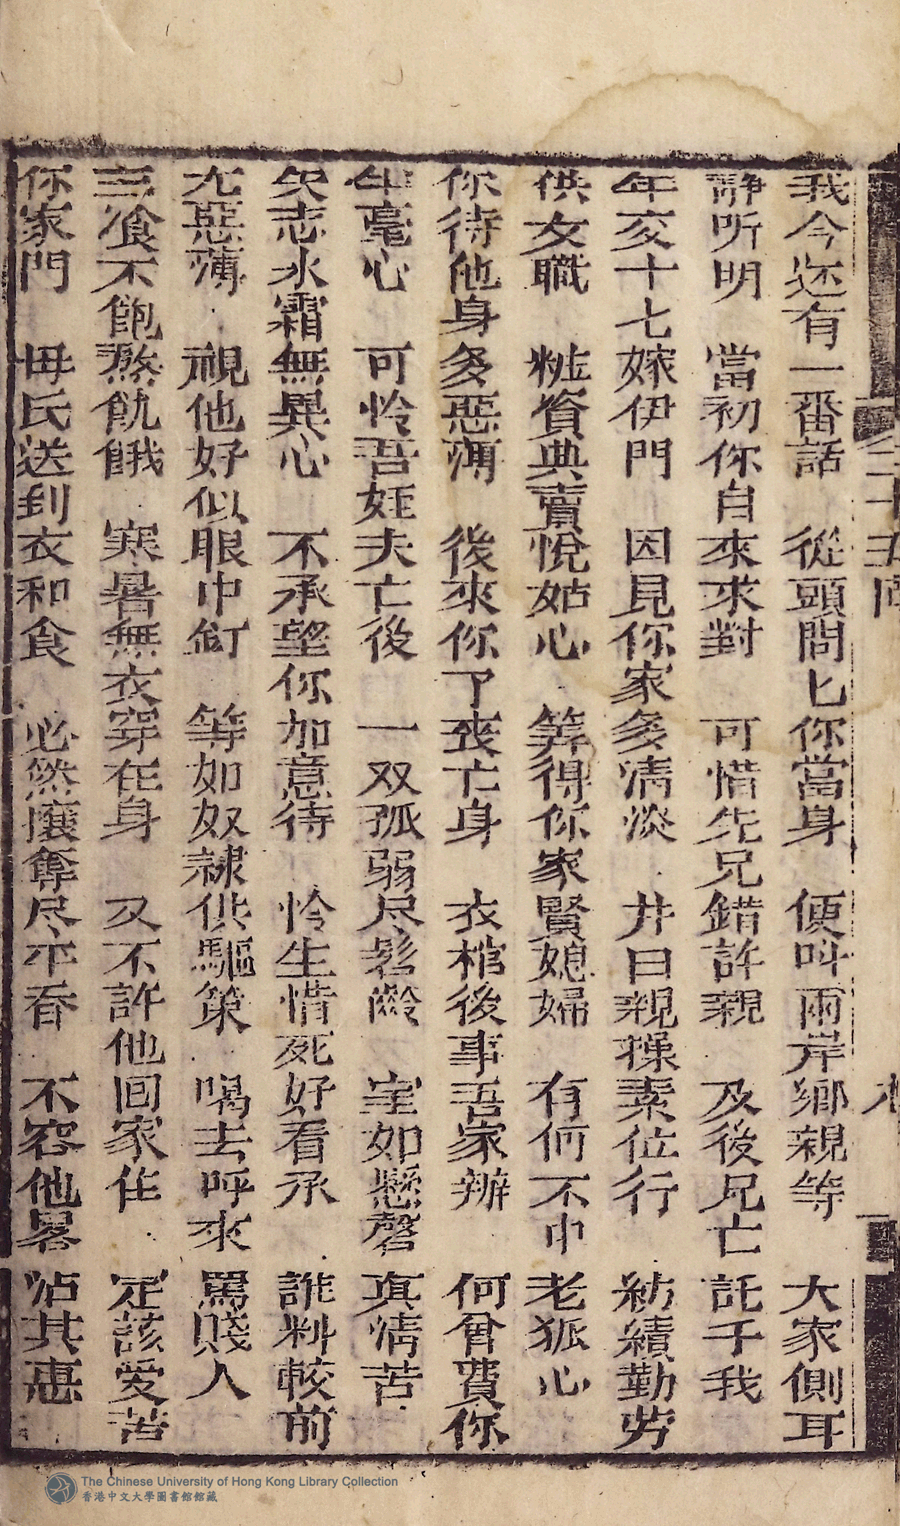 我今还有一番話 從頭問匕你當身 便叫兩岸鄉親等 大家側耳
静听明 當初你自來求對 可惜先兄錯許親 及後兄亡 託于我
年亥十七嫁伊門 因見你家多清淡 井臼親操素位行 紡績勤劳
供女職 粧資典賣悅姑心 筭得你家賢媳婦 有何不中 老狐心
你待他身多惡薄 後來你了丧亡身 衣棺後事吾家辦 何曾費你
半毫心 可怜吾姪夫亡後 一双孤弱尽髫齡 室如懸磬 真情苦
矢志氷霜無異心 不承望你加意待 怜生惜死好看承 誰料較前
尤惡薄 視他好似眼中釘 等如奴隷供驅策 喝去呼來 罵賤人
三飡不飽熬飢餓 寒暑無衣穿在身 又不許他回家住 定該爱苦
你家門 毋氏送到衣和食 必然攘奪尽平吞 不容他畧 沾其惠
二十五回
The Chinese University of Hong Kong Library Collection
香港中文大學圖書館館藏